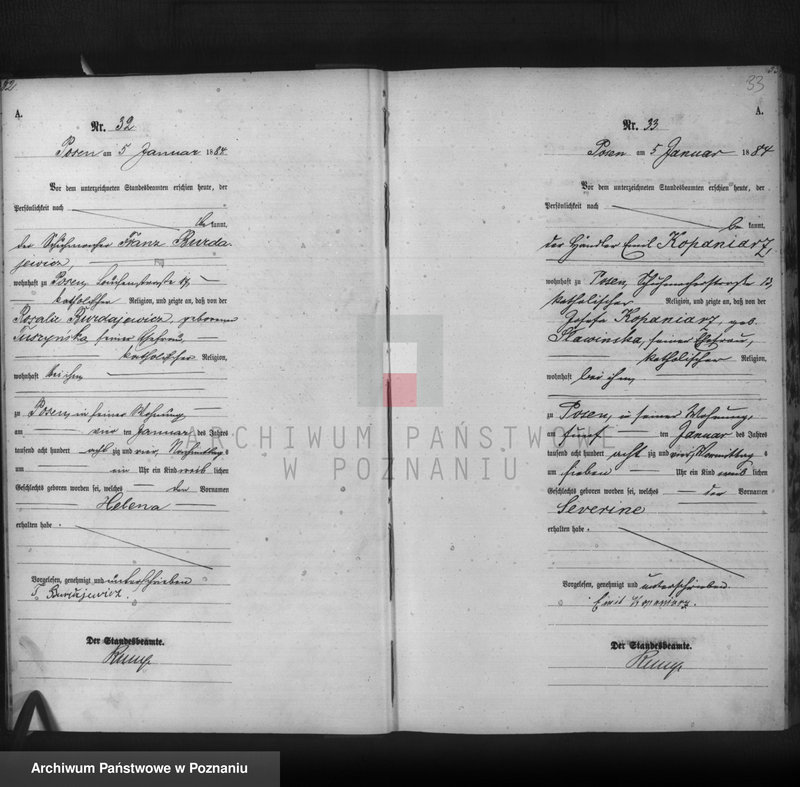 32.
A.
Nr. 32
Posen am 5 Januar 1884
Vor dem unterzeichneten Standesbeamten erschien heute, der
Persönlichkeit nach
be kannt,
der Schuhmacher Franz Burda-
jewicz,
wohnhaft zu Posen,
katholischer Religion, und zeigte an, daß von der
Rozalie Burdajewicz, geborenen
Tuszynska seiner Ehefrau,
katholischer Religion,
wohnhaft bei ihm
zu Posen, in seiner Wohnung,
am vier ten Januar des Jahres
tausend acht hundert acht zig und vier, Nachmittag s
um ein Uhr ein Kind weib lichen
Geschlechts geboren worden sei, welches den Vornamen
Helena
erhalten habe.
Vorgelesen, genehmigt und unterschrieben
F. Burdajewicz.
Der Standesbeamte.
33
A.
Nr. 33.
Posen am 5 Januar 1884
Vor dem unterzeichneten Standesbeamten erschien heute, der
Persönlichkeit nach
be kannt,
der Händler Emil Kopaniarz
wohnhaft zu Posen, Schuhmacherstraße 13,
katholischer Religion, und zeigte an, daß von der
Josefa Kopaniarz, geb.
Slawinska, seiner Ehefrau,
katholischer Religion,
wohnhaft bei ihm
zu Posen, in seiner Wohnung,
am fünf ten Januar des Jahres
tausend acht hundert acht zig und vier Vormittag s
um sieben Uhr ein Kind weib lichen
Geschlechts geboren worden sei, welches den Vornamen
Severine
erhalten habe.
Vorgelesen, genehmigt und unterschrieben.
Emil Kopaniarz.
Der Standesbeamte.
ARCHIWUM PAŃSTWOWE
W POZNANIU
Archiwum Państwowe w Poznaniu